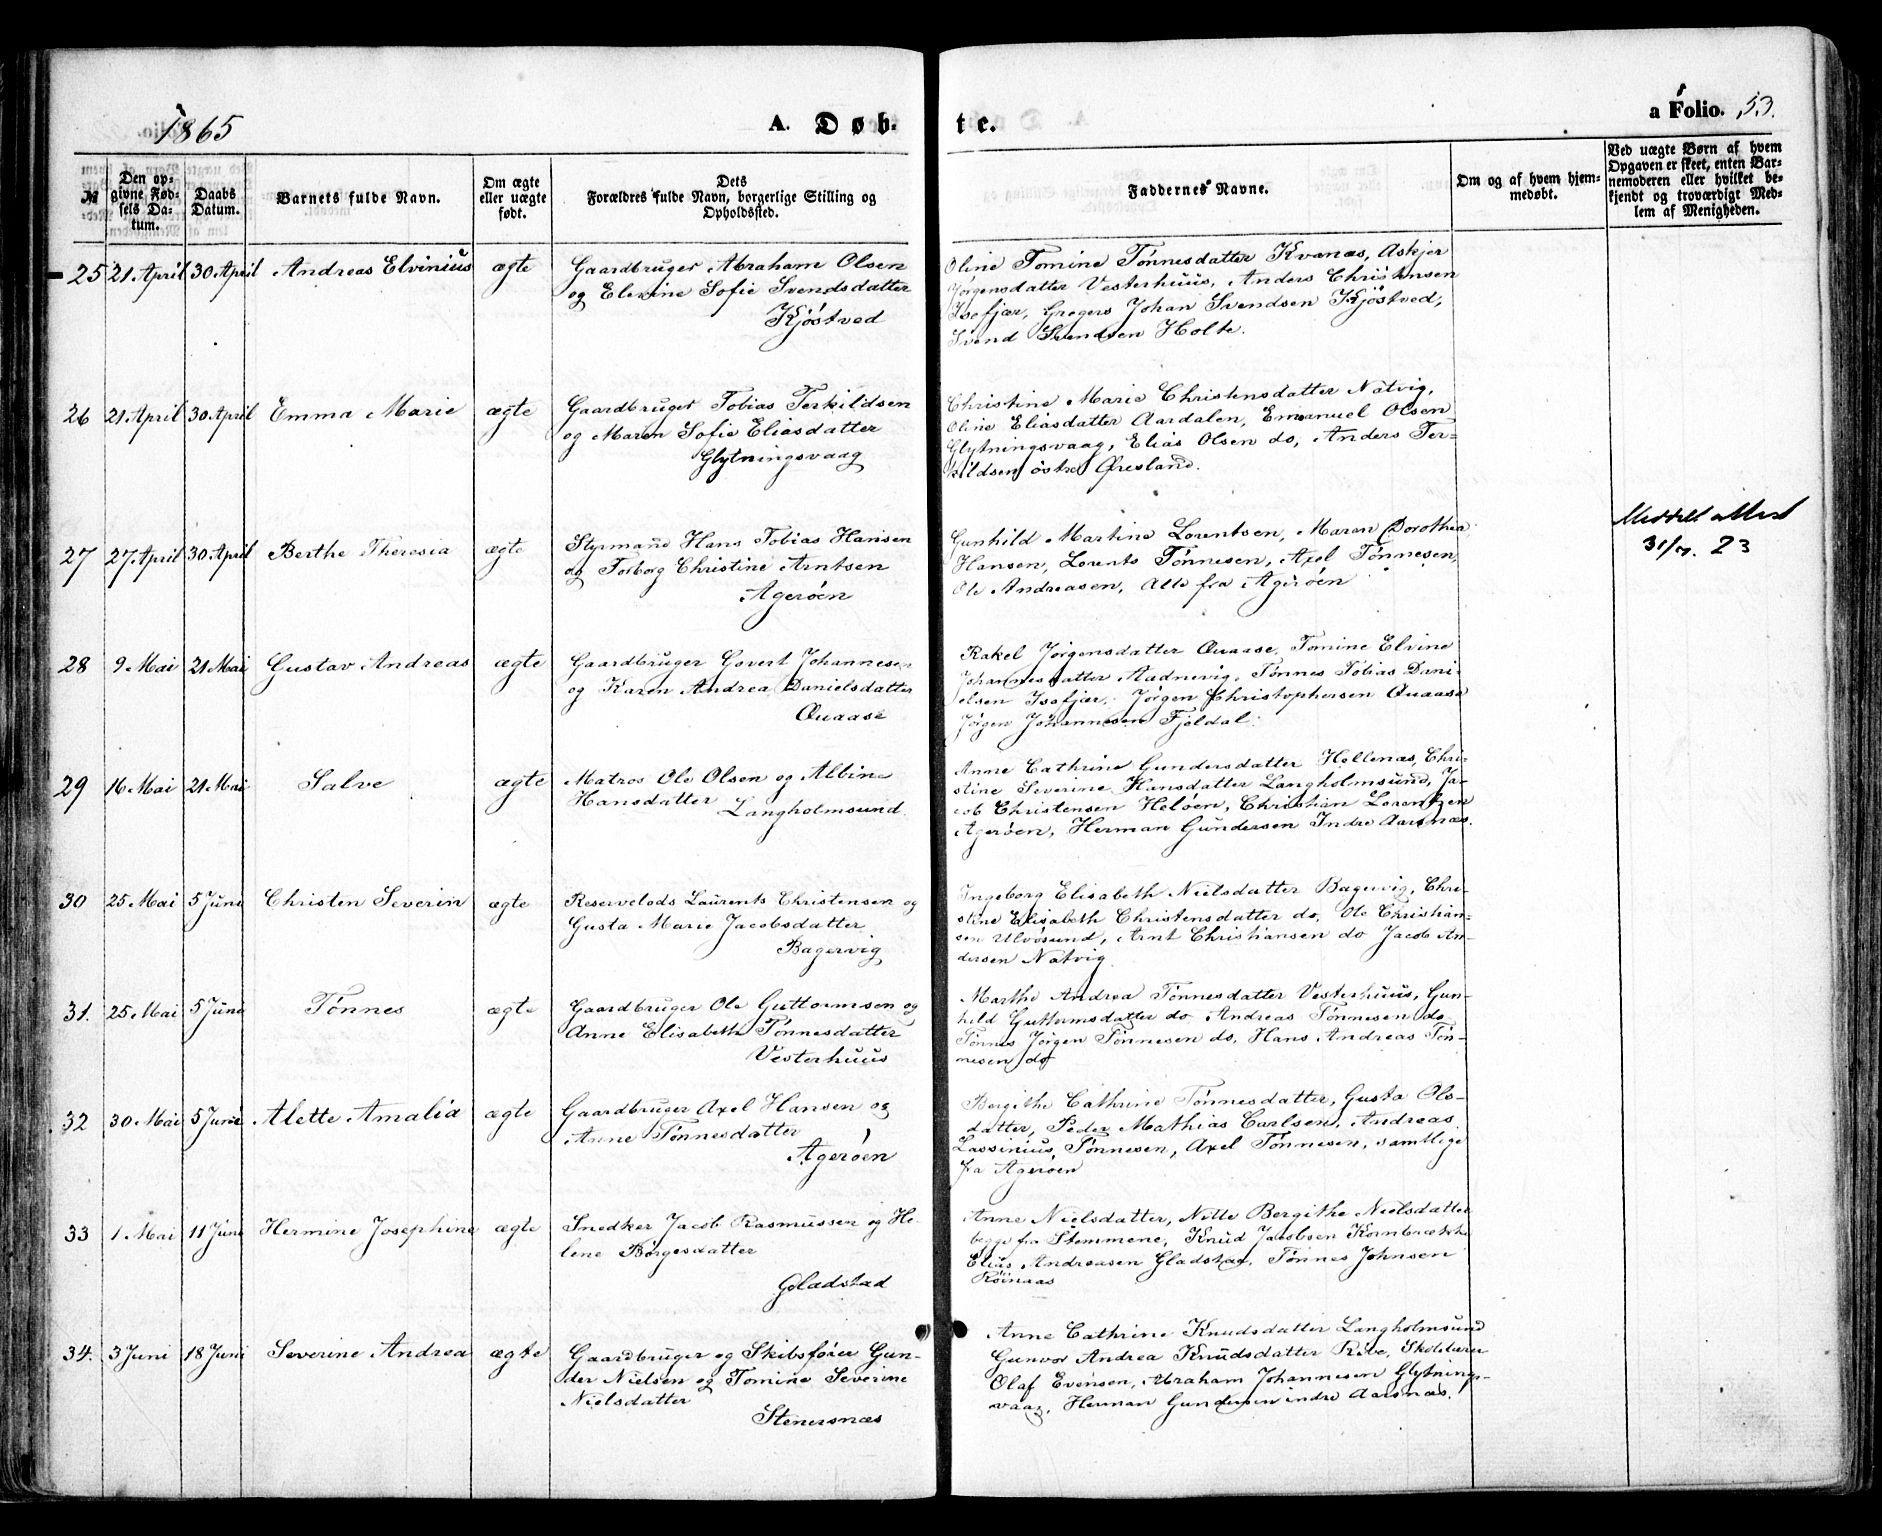 1865
A. Døb-
te.
a Folio. 53.
№
Den op-
givne Fød-
sels Da-
tum.
Daabs
Datum.
Barnets fulde Navn.
Om ægte
eller uægte
født.
Dets
Forældres fulde Navn, borgerlige Stilling og
Opholdssted.
Faddernes Navne.
Om og af hvem hjem-
medøbt.
Ved uægte Børn af hvem
Opgaven er skeet, enten Bar-
nemoderen eller hvilket be-
kjendt og troværdigt Med-
lem af Menigheden.
25 21 April 30 April Andreas Elvinius ægte
Gaardbruger Abraham Olsen
og Elevine Sofie Svendsdatter
Kjöstved
Oline Tomine Tønnesdatter Kvanæs, Askjer
Jørgensdatter Vesterhuus, Anders Christensen
Isefjær, Gregers Johan Svendsen Kjöstved,
Svend Svendsen Holte.
26 21 April 30 April Emma Marie ægte
Gaardbruger Tobias Terkildsen
og Maren Sofie Eliasdatter
Glytningsvaag
Christine Marie Christensdatter Natvig,
Oline Eliasdatter Aardalen, Emanuel Olsen
Glytningsvaag, Elias Olsen do, Anders Ter-
kildsen östre Øresland.
27 27 April 30 April Berthe Theresia ægte
Styrmand Hans Tobias Hansen
og Torborg Christine Arntsen
Agerøen
Gunhild Martine Lorentsen, Maren Dorothea
Hansen, Lorents Tønnesen, Axel Tønnesen,
Ole Andreasen, Alle fra Agerøen
Meddelt Attest
23
28 9 Mai 21 Mai Gustav Andreas ægte
Gaardbruger Govert Johannesen
og Karen Andrea Danielsdatter
Quaase
Rakel Jørgensdatter Quaase, Tomine Elvine
Johannesdatter Aadnevig, Tønnes Tobias Dani-
elsen Isefjær, Jørgen Christophersen Quaase
Jørgen Johannesen Fjeldal.
29 16 Mai 21 Mai Salve ægte
Matros Ole Olsen og Albine
Hansdatter
Langholmsund.
Anne Cathrine Gundersdatter Hellenæs, Chri-
stine Severine Hansdatter Langholmsund, Ja-
cob Christensen Heløen, Christian Lorentzen
Agerøen, Herman Gundersen Indre Aarsnæs.
30 25 Mai 5 Juni Christen Severin ægte
Reservelods Laurents Christensen og
Gusta Marie Jacobsdatter
Bagervig
Ingeborg Elisabeth Nielsdatter Bagervig, Chri-
stine Elisabeth Christensdatter do, Ole Christian-
sen Ulvøsund, Arnt Christiansen do Jacob An-
dersen Natvig
31. 25 Mai 5 Juni Tönnes ægte
Gaardbruger Ole Guttormsen og
Anne Elisabeth Tønnesdatter
Vesterhuus
Marthe Andrea Tønnesdatter Vesterhuus, Gun-
hild Guttormsdatter do Andreas Tønnesen do
Tønnes Jørgen Tønnesen do, Hans Andreas Tøn-
nesen do
32 30 Mai 5 Juni Alette Amalia ægte
Gaardbruger Axel Hansen og
Anne Tønnesdatter
Agerøen
Bergithe Cathrine Tønnesdatter, Gusta Ols-
datter, Peder Mathias Carlsen, Andreas
Lassinius Tønnesen, Axel Tønnesen, samtlige
fra Agerøen
33 1 Mai 11 Juni Hermine Josephine ægte
Snedker Jacob Rasmussen og He-
lene Börgesdatter
Gladstad
Anne Nielsdatter, Nille Bergithe Nielsdatter
begge fra Stemmene, Knud Jacobsen Kornbrække
Elias Andreasen Gladstad, Tønnes Johnsen
Röinaas
34. 3 Juni 18 Juni Severine Andrea ægte
Gaardbruger og Skibsfører Gun-
der Nielsen og Tomine Severine
Nielsdatter
Stenersnæs
Anne Cathrine Knudsdatter Langholmsund
Gunvor Andrea Knudsdatter Ribe, Skolelærer
Olaf Evensen, Abraham Johannesen Glytnings-
vaag, Herman Gundersen indre Aarsnæs.